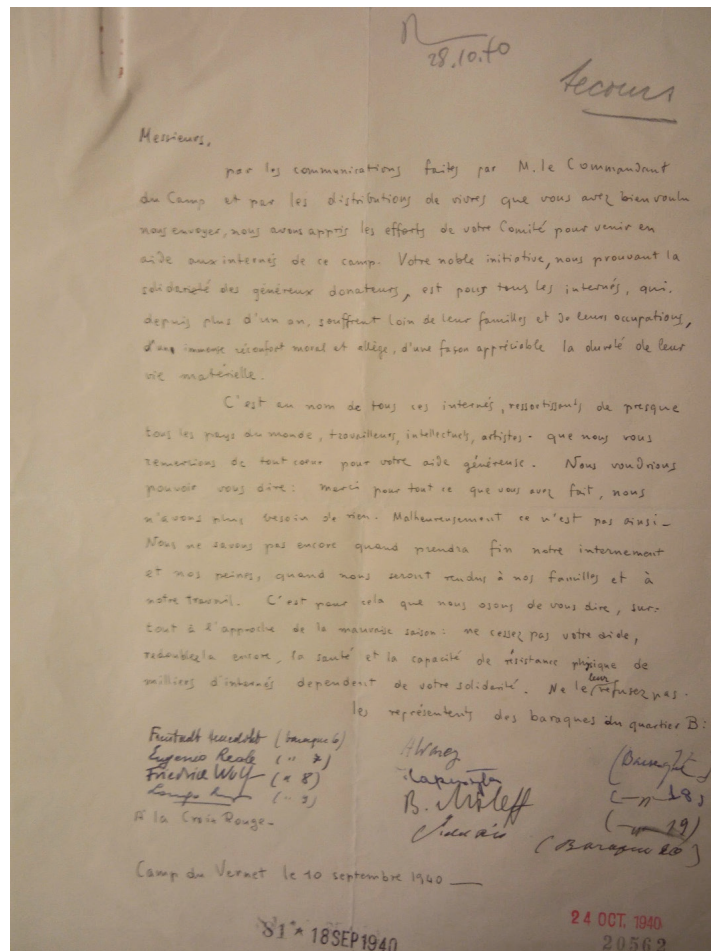 28.10.40
Secours
Messieurs,
par les communications faites par M. le Commandant
du Camp et par les distributions de vivres que vous avez bien voulu
nous envoyer, nous avons appris les efforts de votre Comité pour venir en
aide aux internés de ce camp. Votre noble initiative, nous prouvant la
solidarieté des généreux donateurs, est pour tous les internés, qui
depuis plus d'un an, souffrent loin de leur familles et de leurs occupations,
d'un immense réconfort moral et allège, d'une façon appréciable la dureté de leur
vie matérielle.
C'est au nom de tous ces internés, ressortissants de presque
tous les pays du monde, travailleurs, intellectuels, artistes - que nous vous
remercions de tout cœur pour votre aide généreuse. Nous voudrions
pouvoir vous dire: merci pour tout ce que vous avez fait, nous
n'avons plus besoin de rien. Malheureusement ce n'est pas ainsi_
Nous ne savons pas encore quand prendra fin notre internement
et nos peines, quand nous seront rendus à nos familles et à
notre travail. C'est pour cela que nous osons de vous dire, sur-
tout à l'approche de la mauvaise saison: ne cessez pas votre aide,
redoublez la encore, la santé et la capacité de résistance physique de
milliers d'internés dependent de votre solidarité. Ne le leur refusez pas.
les représentents des baraques du quartier B:
(baraque 6)
Eugenio Reale ( " 7)
Friedrich Wolf ( " 8)
( " 9)
A la Croix Rouge-
Alvarez (Baraque
( - " - 18)
B. ( - " - 19)
(Baraque 20)
Camp du Vernet le 10 septembre 1940 __
S1 * 18 SEP 1940
24 OCT. 1940
20562